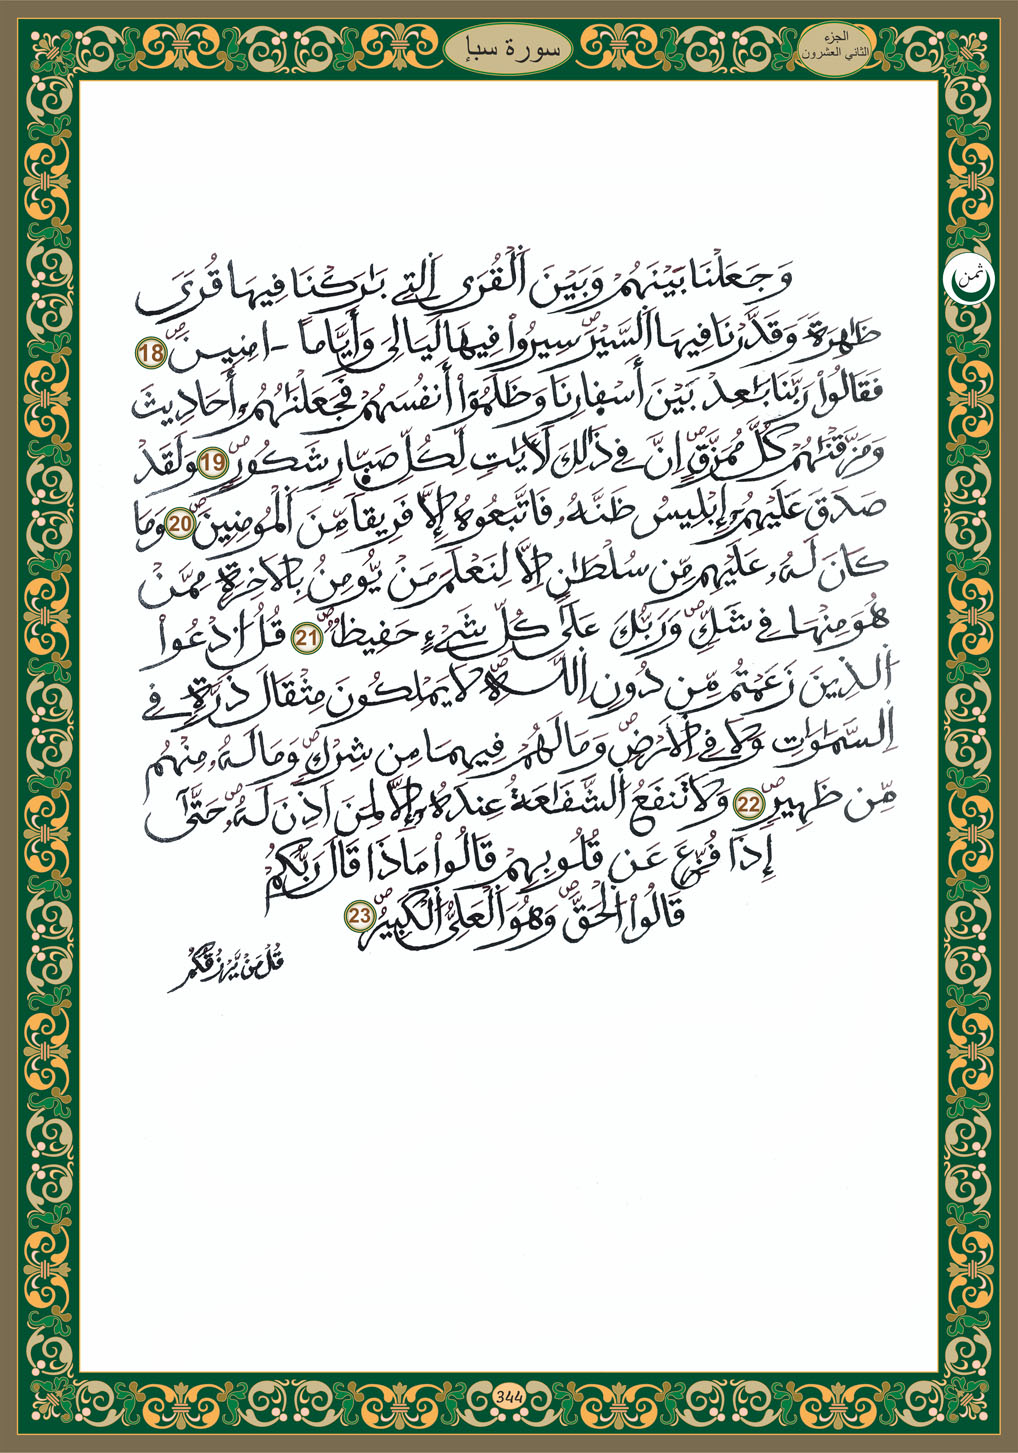 الجزء
الثاني العشرون
سورة سبإ
ثمن
وَجَعَلْنَا بَيْنَهُمْ وَبَيْنَ اَ۬لْقُرَي اَ۬لتِے بَٰرَكْنَا فِيهَا قُريٗ
ظَٰهِرَةٗ وَقَدَّرْنَا فِيهَا اَ۬لسَّيْرَۖ سِيرُواْ فِيهَا لَيَالِيَ وَأَيَّاماً ـ اٰمِنِينَۖ 18
فَقَالُواْ رَبَّنَا بَٰعِدْ بَيْنَ أَسْفِارِنَا وَظَلَمُوٓاْ أَنفُسَهُمْ فَجَعَلْنَٰهُمُۥٓ أَحَادِيثَ
وَمَزَّقْنَٰهُمْ كُلَّ مُمَزَّقٍۖ اِنَّ فِے ذَٰلِكَ لَأٓيَٰتٖ لِّكُلِّ صَبّ۪ارٖ شَكُورٖۖ 19 وَلَقَدْ
صَدَقَ عَلَيْهِمُۥٓ إِبْلِيسُ ظَنَّهُۥ فَاتَّبَعُوهُ إِلَّا فَرِيقاٗ مِّنَ اَ۬لْمُومِنِينَۖ 20 وَمَا
كَانَ لَهُۥ عَلَيْهِم مِّن سُلْطَٰنٍ اِلَّا لِنَعْلَمَ مَنْ يُّومِنُ بِالَاخِرَةِ مِمَّنْ
هُوَ مِنْهَا فِے شَكّٖۖ وَرَبُّكَ عَلَيٰ كُلِّ شَےْءٍ حَفِيظٞۖ 21 قُلُ اُ۟دْعُواْ
اُ۬لذِينَ زَعَمْتُم مِّن دُونِ اِ۬للَّهِۖ لَا يَمْلِكُونَ مِثْقَالَ ذَرَّةٖ فِے
اِ۬لسَّمَٰوَٰتِ وَلَا فِے اِ۬لَارْضِۖ وَمَا لَهُمْ فِيهِمَا مِن شِرْكٖۖ وَمَا لَهُۥ مِنْهُم
مِّن ظَهِيرٖۖ 22 وَلَا تَنفَعُ اُ۬لشَّفَٰعَةُ عِندَهُۥٓ إِلَّا لِمَنَ اَذِنَ لَهُۥۖ حَتَّيٰٓ
إِذَا فُزِّعَ عَن قُلُوبِهِمْ قَالُواْ مَاذَا قَالَ رَبُّكُمْ
قَالُواْ اُ۬لْحَقَّۖ وَهُوَ اَ۬لْعَلِيُّ اُ۬لْكَبِيرُۖ 23
قُلْ مَنْ يَّرْزُقُكُم
344